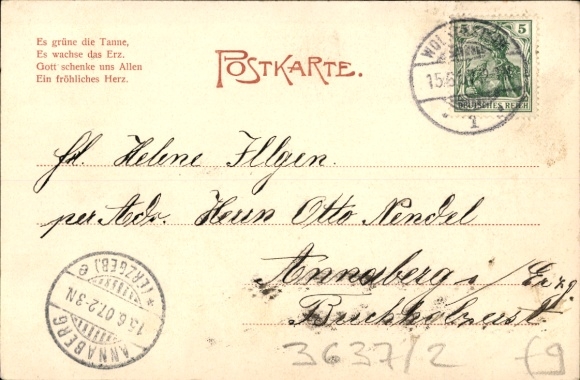 Es grüne die Tanne,
Es wachse das Erz.
Gott schenke uns Allen
Ein fröhliches Herz.
POSTKARTE.
5
DEUTSCHES REICH
15.6
1
Frl. Helene Illgen.
per Adr. Herrn Otto Nendel
Annaberg i/Erzg
Buchholzerstr
ANNABERG
15.6.07.2-3N.
*(ERZGEB.) e
3637/2
f9